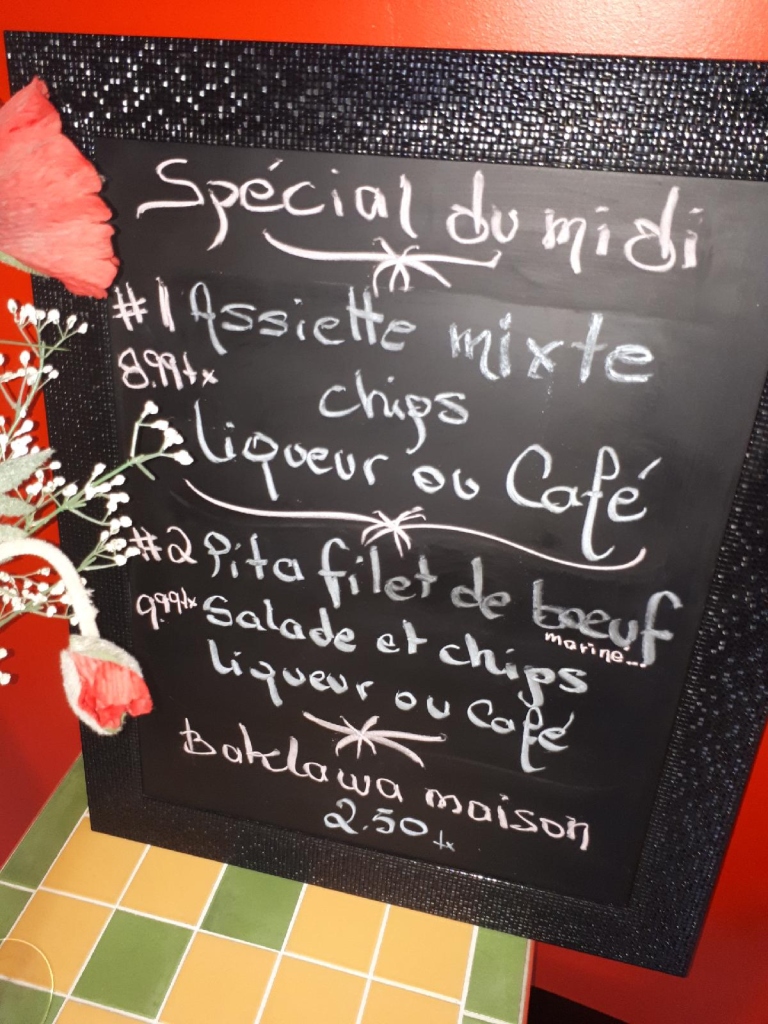 Spécial du midi
#1 Assiette mixte
8.99+x chips
liqueur ou Café
#2 Pita filet de boeuf
marine...
9.99+x Salade et chips
liqueur ou Café
Baklawa maison
2.50 tx